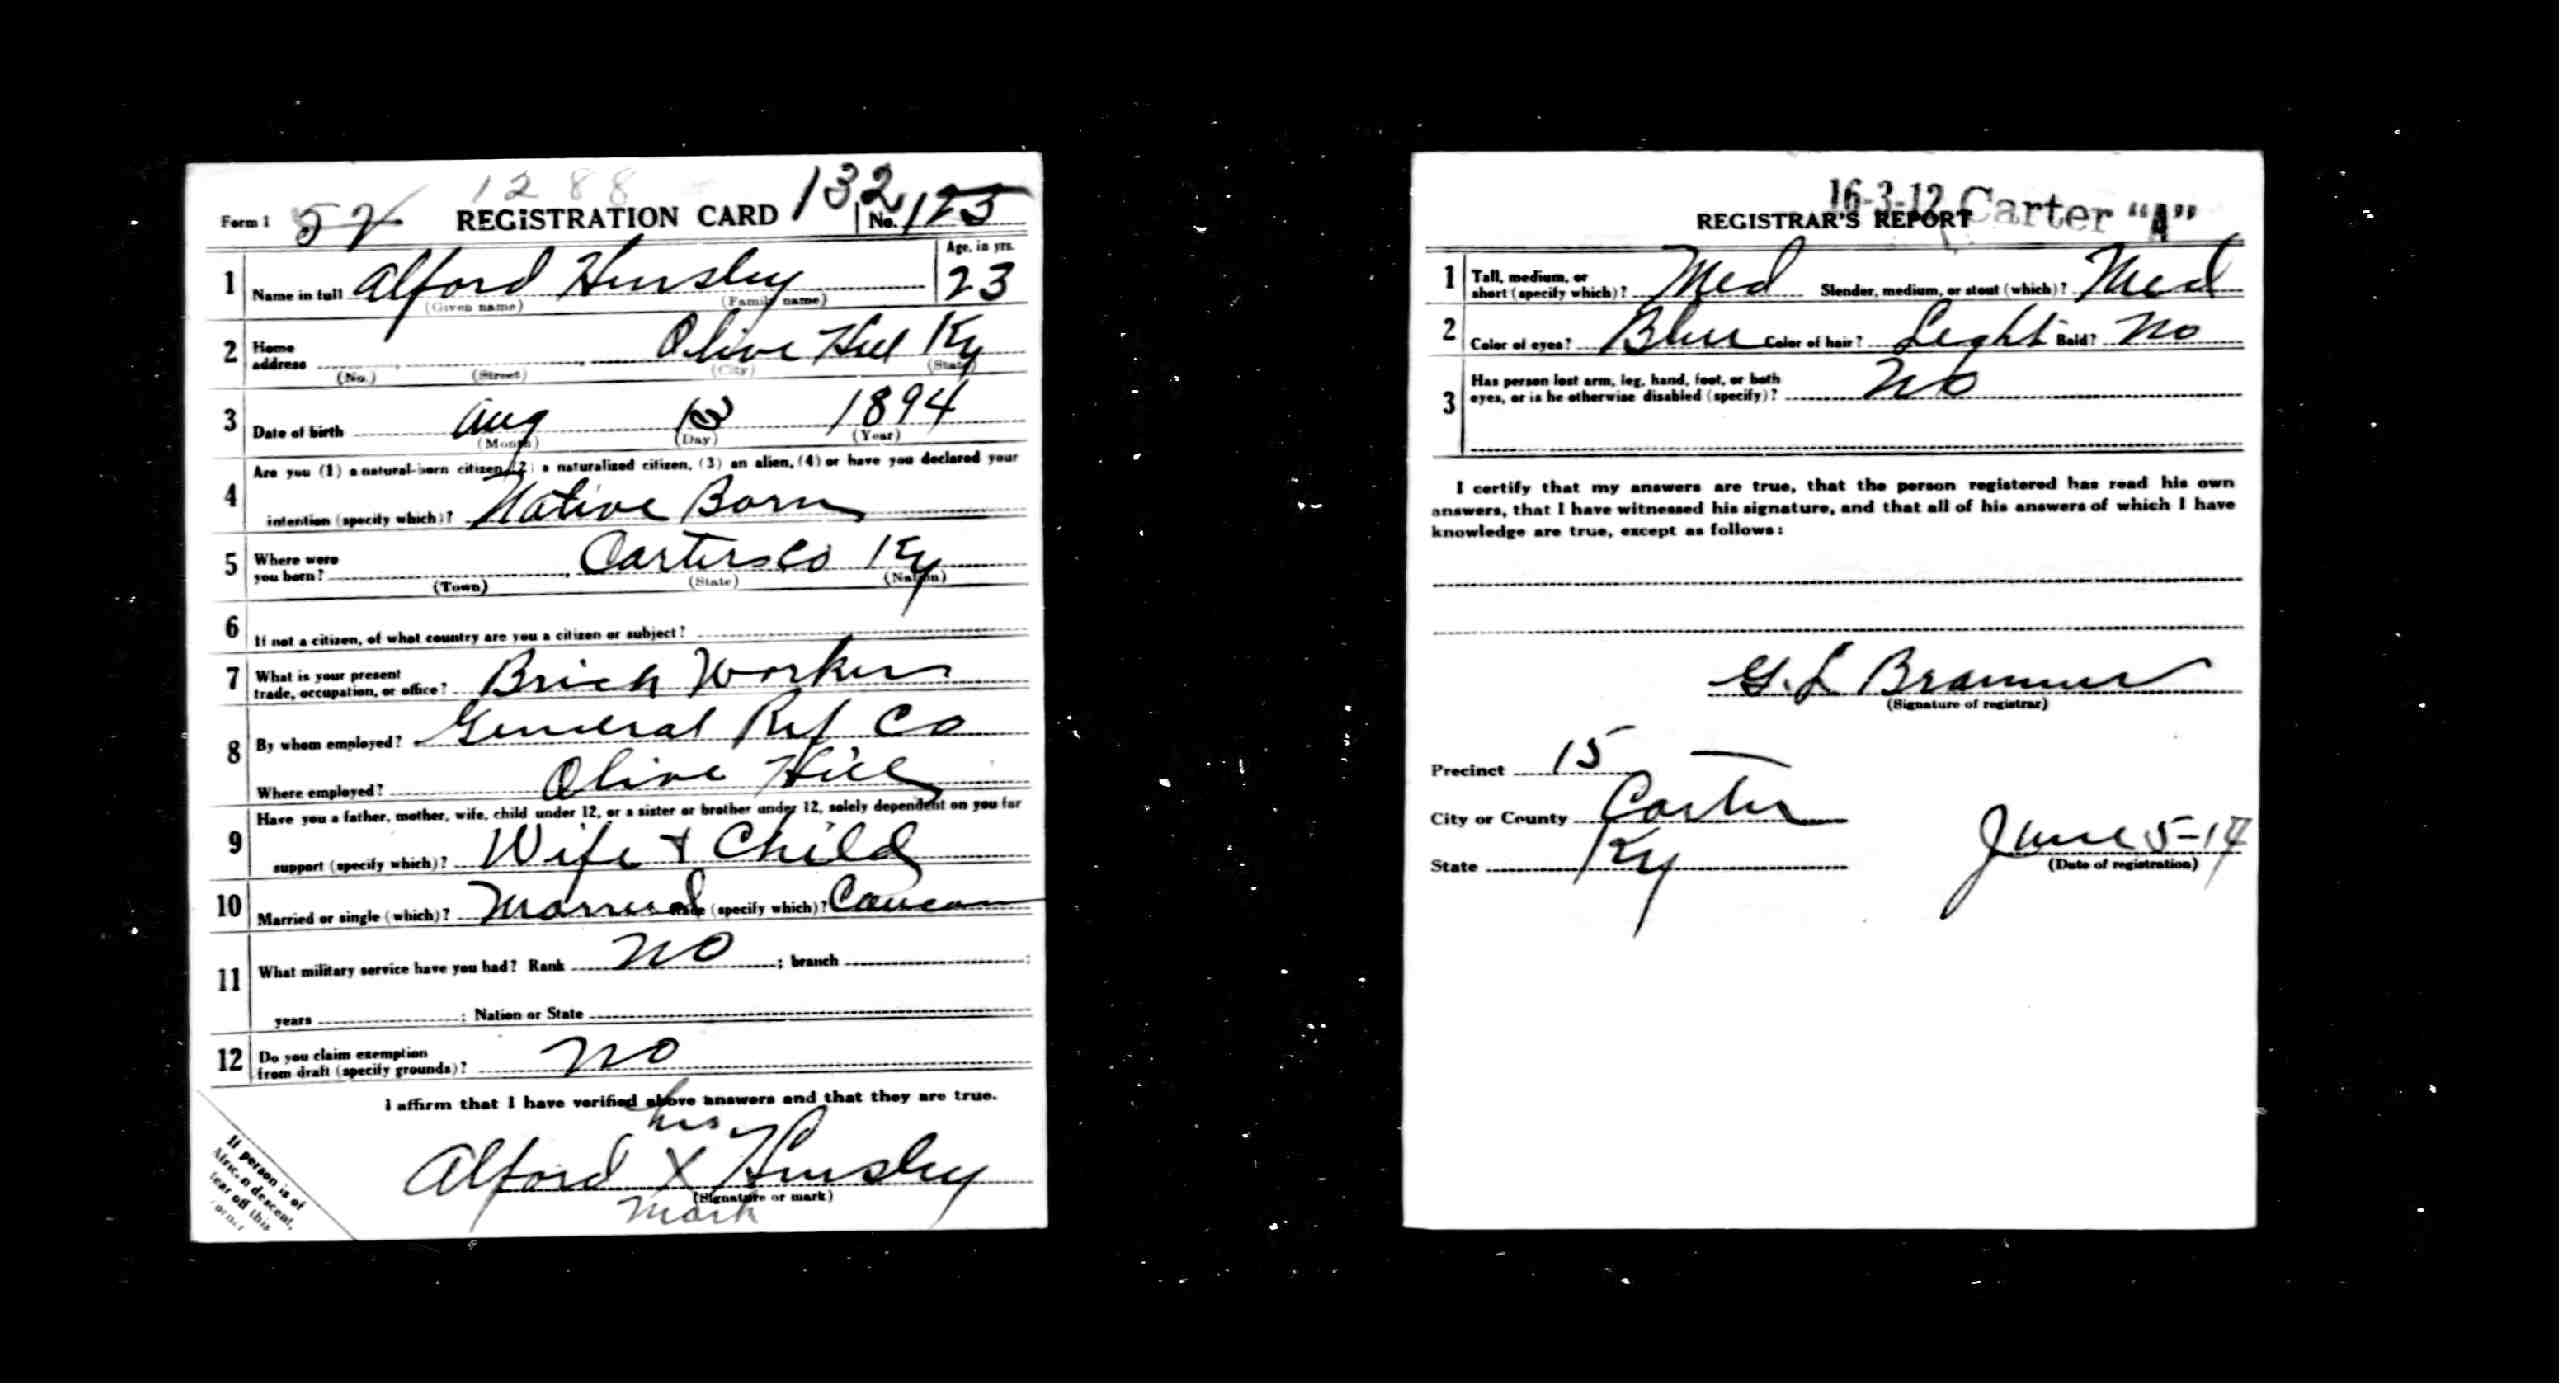 1288
Form 1 52 REGISTRATION CARD 132 No. 125
1 Name in full Alford Hensley Age, in yrs. 23
(Given name) (Family name)
2 Home address Olive Hill Ky
(No.) (Street) (City) (State)
3 Date of birth Aug 13 1894
(Month) (Day) (Year)
4 Are you (1) a natural-born citizen, (2) a naturalized citizen, (3) an alien, (4) or have you declared your
intention (specify which)? Native Born
5 Where were you born? Carter Co Ky
(Town) (State) (Nation)
6 If not a citizen, of what country are you a citizen or subject?
7 What is your present trade, occupation, or office? Brick Worker
8 By whom employed? General Ref Co
Where employed? Olive Hill
9 Have you a father, mother, wife, child under 12, or a sister or brother under 12, solely dependent on you for
support (specify which)? Wife + Child
10 Married or single (which)? Married Race (specify which)? Caucan
11 What military service have you had? Rank no ; branch ;
years ; Nation or State
12 Do you claim exemption from draft (specify grounds)? no
I affirm that I have verified above answers and that they are true.
his
Alford X Hensley
(Signature or mark)
mark
If person is of
African descent,
tear off this
corner
16-3-12 Carter "A"
REGISTRAR'S REPORT
1 Tall, medium, or short (specify which)? Med Slender, medium, or stout (which)? Med
2 Color of eyes? Blue Color of hair? Light Bald? No
3 Has person lost arm, leg, hand, foot, or both
eyes, or is he otherwise disabled (specify)? no
I certify that my answers are true, that the person registered has read his own
answers, that I have witnessed his signature, and that all of his answers of which I have
knowledge are true, except as follows:
G. L Brammer
(Signature of registrar)
Precinct 15
City or County Carter
State Ky June 5-17
(Date of registration)